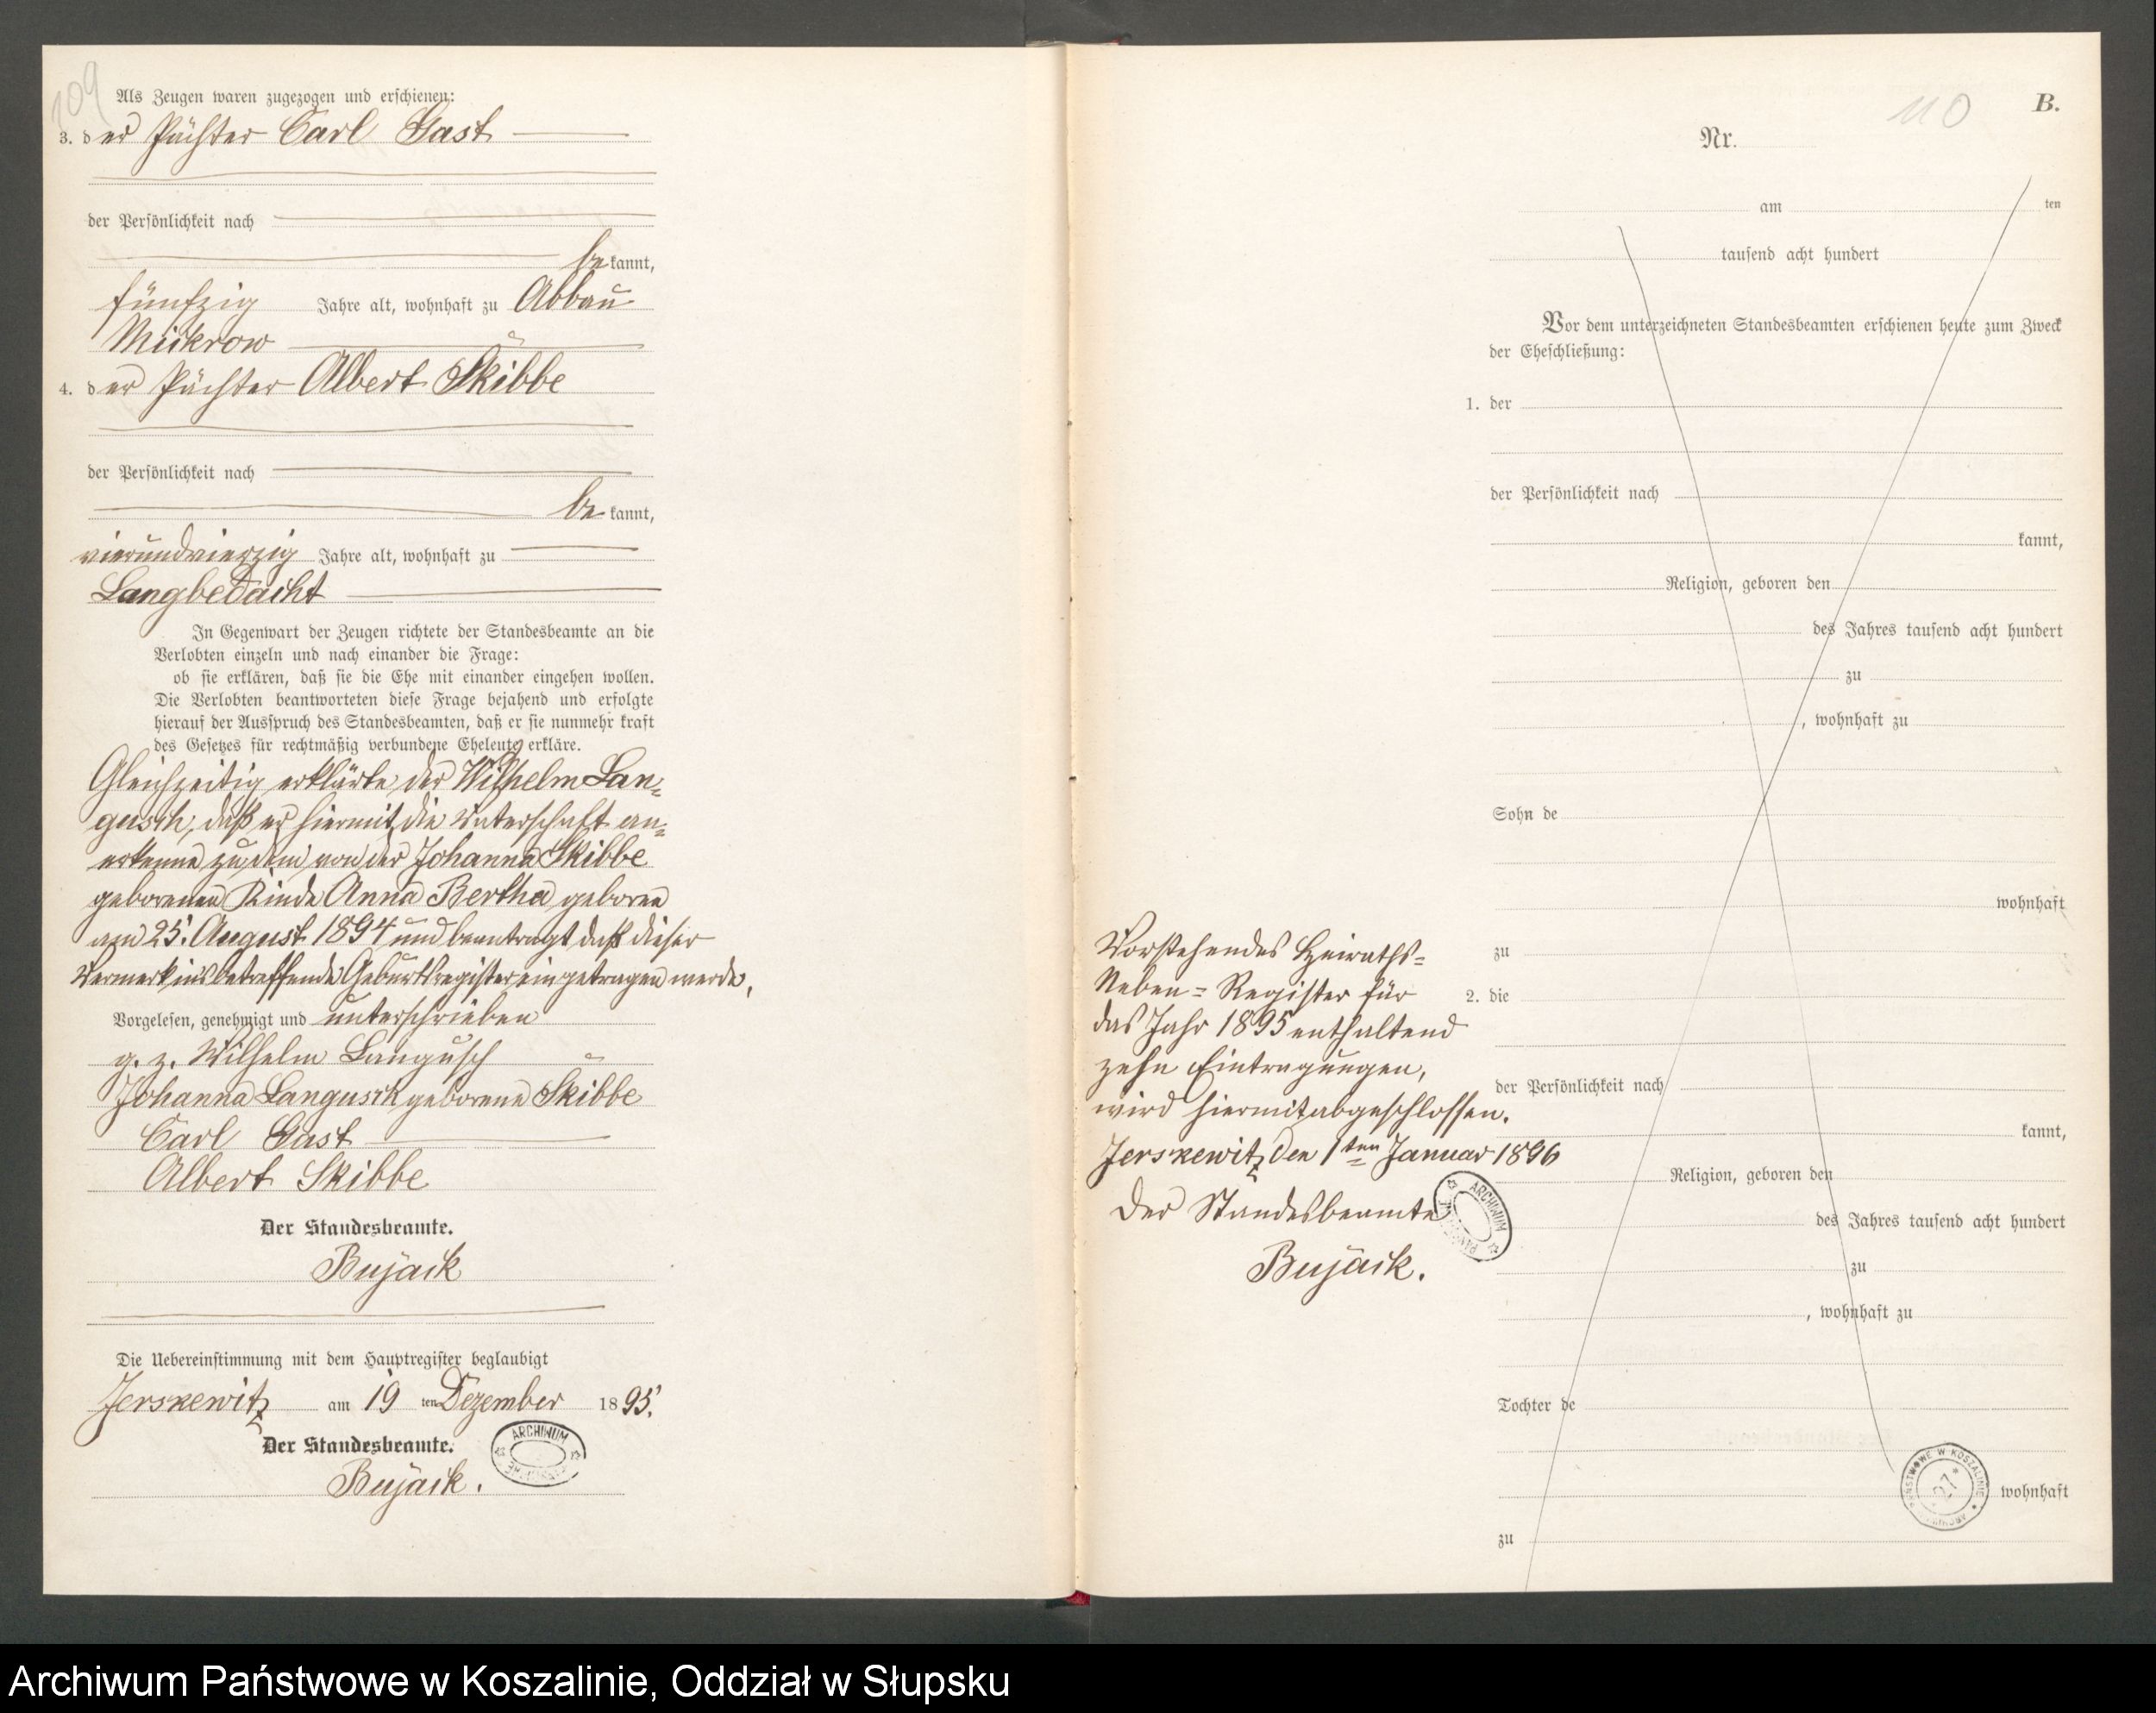 109
Als Zeugen waren zugezogen und erschienen:
3. der Pächter Carl Gast
der Persönlichkeit nach
bekannt,
fünfzig Jahre alt, wohnhaft zu Abbau
Mickrow
4. der Pächter Albert Skibbe
der Persönlichkeit nach
bekannt,
vierundvierzig Jahre alt, wohnhaft zu
Langbedacht
In Gegenwart der Zeugen richtete der Standesbeamte an die
Verlobten einzeln und nach einander die Frage:
ob sie erklären, daß sie die Ehe mit einander eingehen wollen.
Die Verlobten beantworteten diese Frage bejahend und erfolgte
hierauf der Ausspruch des Standesbeamten, daß er sie nunmehr kraft
des Gesetzes für rechtmäßig verbundene Eheleute erkläre.
Gleichzeitig erklärte der Wilhelm Lan-
gusch, daß er hiermit die Vaterschaft an-
erkenne zu dem von der Johanna Skibbe
geborenen Kinde Anna Bertha geboren
am 25. August 1894 und beantragt daß dieser
Vermerk ins betreffende Geburtsregister eingetragen werde.
Vorgelesen, genehmigt und unterschrieben
g. z. Wilhelm Langusch
Johanna Langusch geborene Skibbe
Carl Gast
Albert Skibbe
Der Standesbeamte.
Bujack
Die Uebereinstimmung mit dem Hauptregister beglaubigt
Jerskewitz am 19 ten Dezember 1895.
Der Standesbeamte.
Bujack.
ARCHIWUM
110
B.
Nr.
am ten
tausend acht hundert
Vor dem unterzeichneten Standesbeamten erschienen heute zum Zweck
der Eheschließung:
1. der
der Persönlichkeit nach
kannt,
Religion, geboren den
des Jahres tausend acht hundert
zu
, wohnhaft zu
Sohn de
wohnhaft
zu
2. die
der Persönlichkeit nach
kannt,
Religion, geboren den
des Jahres tausend acht hundert
zu
, wohnhaft zu
Tochter de
wohnhaft
zu
Vorstehendes Heiraths-
Neben-Register für
das Jahr 1895 enthaltend
zehn Eintragungen,
wird hiermit abgeschlossen.
Jerskewitz den 1ten Januar 1896
Der Standesbeamte
Bujack.
ARCHIWUM
PAŃSTWOWE W KOSZALINIE
27
Archiwum Państwowe w Koszalinie, Oddział w Słupsku